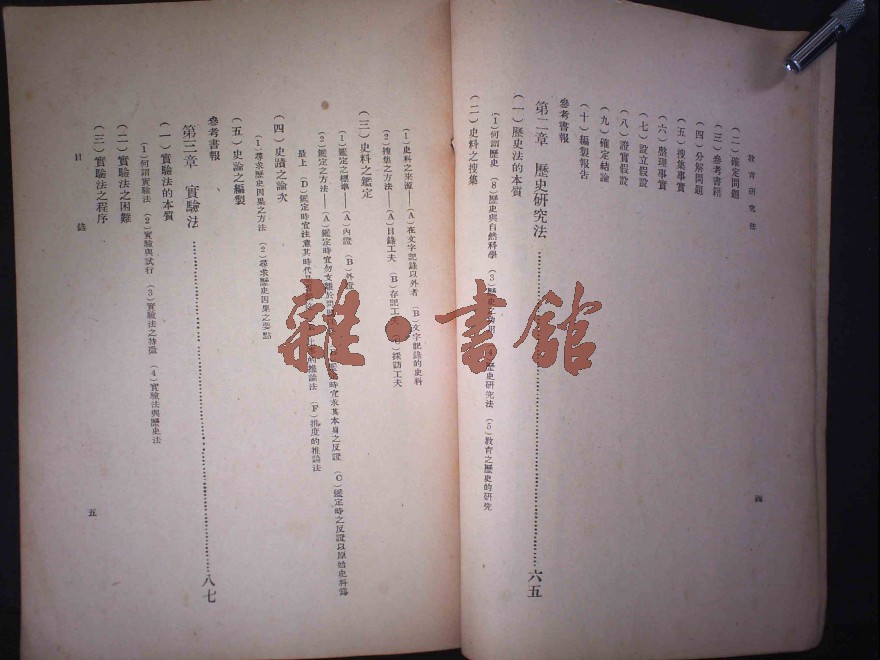 教育研究法
(二)確定問題
(三)參考書籍
(四)分解問題
(五)搜集事實
(六)整理事實
(七)設立假設
(八)證實假設
(九)確定結論
(十)編製報告
參考書報
第二章 歷史研究法……六五
(一)歷史法的本質
(1)何謂歷史 (8)歷史與自然科學 (3)歷史之 (4)歷史研究法 (5)教育之歷史的研究
(二)史料之搜集
四
(1)史料之來源——(A)在文字記錄以外者 (B)文字記錄的史料
(2)搜集之方法——(A)目錄工夫 (B)存記工 採訪工夫
(三)史料之鑑定
(1)鑑定之標準——(A)內證 (B)外證
(2)鑑定之方法——(A)鑑定時宜勿支離於 時宜求其本身之反證 (C)鑑定時之反證以原始史料為
最上 (D)鑑定時宜注意其時代 的推論法 (F)推度的推論法
(四)史蹟之論次
(1)尋求歷史因果之方法 (2)尋求歷史因果之要點
(五)史論之編製
參考書報
第三章 實驗法……八七
(一)實驗法的本質
(1)何謂實驗法 (2)實驗與試行 (3)實驗法之特徵 (4)實驗法與歷史法
(二)實驗法之困難
(三)實驗法之程序
目錄
五
雜·書館